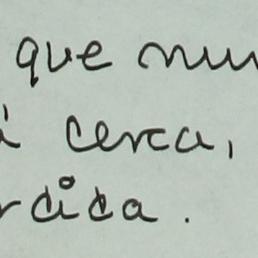 que nun
á cerca,
rdida.